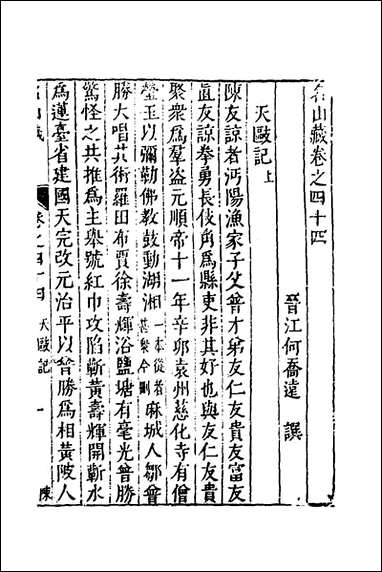 名山藏卷之四十四
晉江何喬遠 譔
天敺記上
陳友諒者沔陽漁家子父普才弟友仁友貴友富友
直友諒拳勇長伎角爲縣吏非其好也與友仁友貴
聚衆爲羣盜元順帝十一年辛卯袁州慈化寺有僧
瑩玉以彌勒佛教鼓動湖湘一本從者甚衆今刪麻城人鄒普
勝大唱其術羅田布賈徐壽輝浴鹽塘有毫光普勝
驚怪之共推爲主舉號紅巾攻陷蘄黃壽輝開蘄水
爲蓮臺省建國天完改元治平以普勝爲相黃陂人
名山藏 卷之四十四 天敺記 一 陳